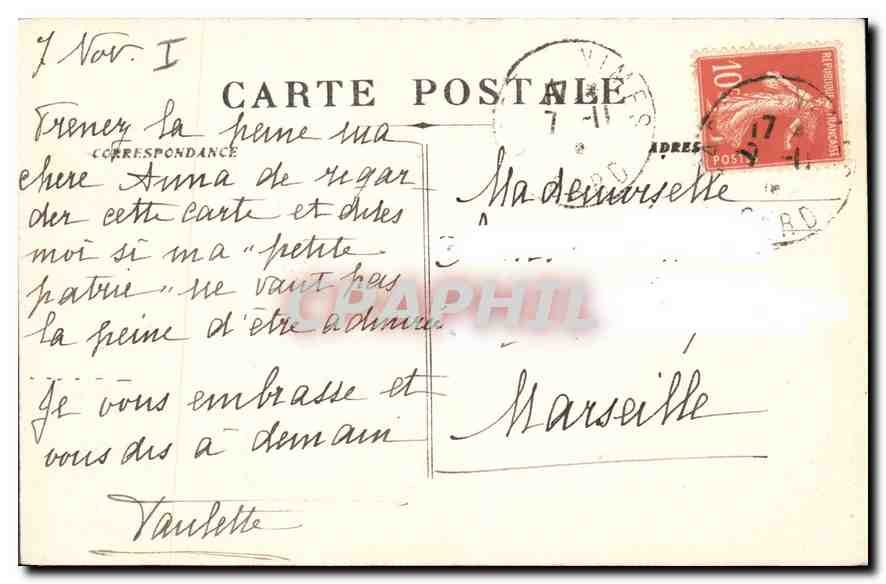 7 Nov. I
CARTE POSTALE
Prenez la peine ma
CORRESPONDANCE
chere Anna de regar
der cette carte et dites
moi si ma "petite
patrie" ne vaut pas
la peine d'être admiré
Je vous embrasse et
vous dis à demain
Paulette
NIMES
17
7 -11
GARD
RÉPUBLIQUE FRANÇAISE
10
POSTES
17
-11
GARD
ADRES
Mademoiselle
Marseille
CPAPHIL